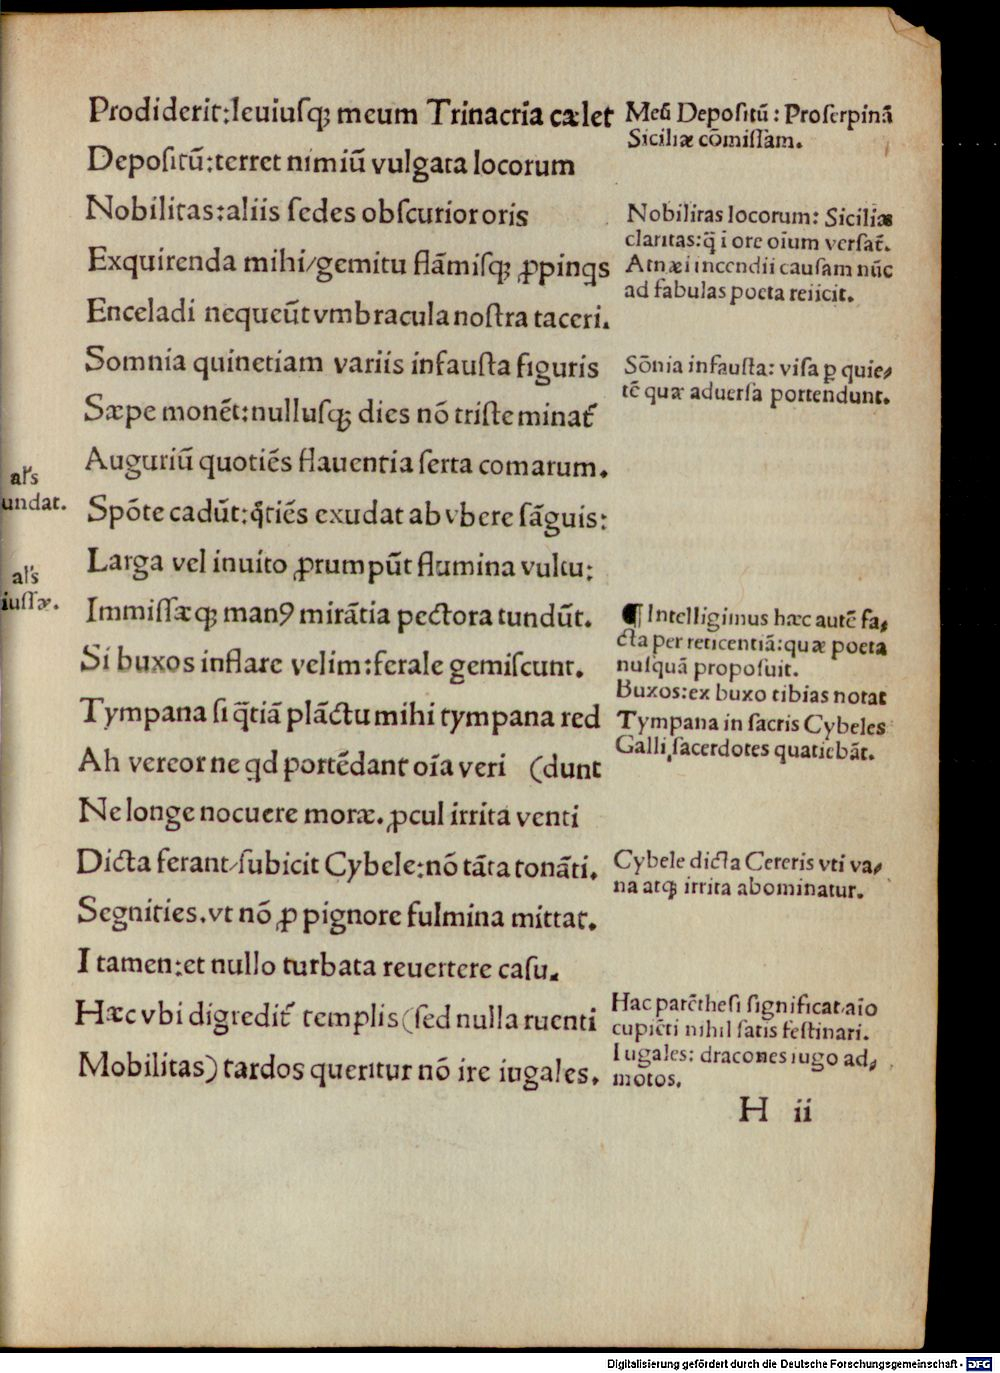 Prodiderit:leuiuſq; meum Trinacria cælet
Depoſitũ:terret nimiũ vulgata locorum
Nobilitas:aliis ſedes obſcurior oris
Exquirenda mihi/gemitu flãmiſq; ꝓpinqs
Enceladi nequeũt vmbracula noſtra taceri.
Somnia quinetiam variis infauſta figuris
Sæpe monẽt:nulluſq; dies nõ triſte minat᷑
Auguriũ quotiẽs flauentia ſerta comarum.
Spõte cadũt:q̃tiẽs exudat ab vbere ſãguis:
Larga vel inuito ꝓrumpũt flumina vultu:
Immiſſæq; manꝯ mirãtia pectora tundũt.
Si buxos inflare velim:ferale gemiſcunt.
Tympana ſi q̃tiã plãctu mihi tympana red
Ah vereor ne qd portẽdant oĩa veri (dunt
Ne longe nocuere moræ. ꝓcul irrita venti
Dicta ferant/ſubicit Cybele:nõ tãta tonãti.
Segnities.vt nõ ꝓ pignore fulmina mittat.
I tamen:et nullo turbata reuertere caſu.
Hæc vbi digredit᷑ templis (ſed nulla ruenti
Mobilitas) tardos queritur nõ ire iugales.
al's
undat.
al's
iuſſæ.
Meũ Depoſitũ: Proſerpinã
Siciliæ cõmiſſam.
Nobilitas locorum: Siciliæ
claritas:q̃ i ore oium verſat᷑.
Atnæi incendii cauſam nũc
ad fabulas poeta reiicit.
Sõnia infauſta: viſa ꝑ quie⸗
tẽ quæ aduerſa portendunt.
¶ Intelligimus hæc autẽ fa⸗
cta per reticentiã:quæ poeta
nuſquã propoſuit.
Buxos:ex buxo tibias notat
Tympana in ſacris Cybeles
Galli ſacerdotes quatiebãt.
Cybele dicta Cereris vti va⸗
na atq; irrita abominatur.
Hac parẽtheſi ſignificat aĩo
cupiẽti nihil ſatis feſtinari.
Iugales: dracones iugo ad⸗
motos.
H ii
Digitalisierung gefördert durch die Deutsche Forschungsgemeinschaft - DFG